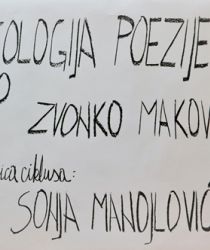 TOLOGIJA POEZIJE
ZVONKO MAKOV
ica ciklusa:
SONJA MANOJLOVIĆ